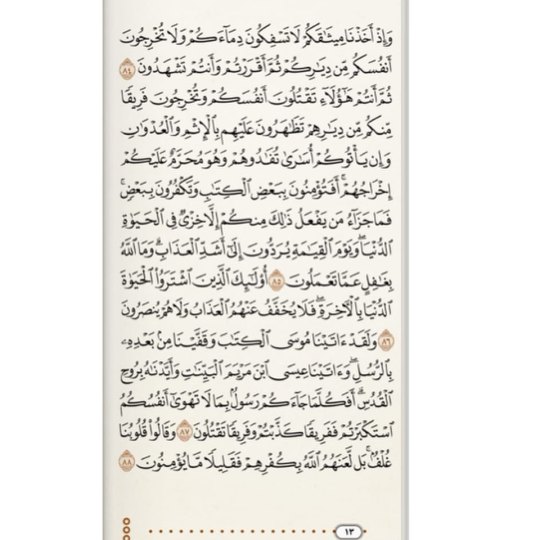 وَإِذْ أَخَذْنَا مِيثَٰقَكُمْ لَا تَسْفِكُونَ دِمَآءَكُمْ وَلَا تُخْرِجُونَ
أَنفُسَكُم مِّن دِيَٰرِكُمْ ثُمَّ أَقْرَرْتُمْ وَأَنتُمْ تَشْهَدُونَ ٨٤
ثُمَّ أَنتُمْ هَٰٓؤُلَآءِ تَقْتُلُونَ أَنفُسَكُمْ وَتُخْرِجُونَ فَرِيقًا
مِّنكُم مِّن دِيَٰرِهِمْ تَظَٰهَرُونَ عَلَيْهِم بِٱلْإِثْمِ وَٱلْعُدْوَٰنِ
وَإِن يَأْتُوكُمْ أُسَٰرَىٰ تُفَٰدُوهُمْ وَهُوَ مُحَرَّمٌ عَلَيْكُمْ
إِخْرَاجُهُمْ ۚ أَفَتُؤْمِنُونَ بِبَعْضِ ٱلْكِتَٰبِ وَتَكْفُرُونَ بِبَعْضٍ ۚ
فَمَا جَزَآءُ مَن يَفْعَلُ ذَٰلِكَ مِنكُمْ إِلَّا خِزْىٌ فِى ٱلْحَيَوٰةِ
ٱلدُّنْيَا ۖ وَيَوْمَ ٱلْقِيَٰمَةِ يُرَدُّونَ إِلَىٰٓ أَشَدِّ ٱلْعَذَابِ ۗ وَمَا ٱللَّهُ
بِغَٰفِلٍ عَمَّا تَعْمَلُونَ ٨٥ أُو۟لَٰٓئِكَ ٱلَّذِينَ ٱشْتَرَوُا۟ ٱلْحَيَوٰةَ
ٱلدُّنْيَا بِٱلْءَاخِرَةِ ۖ فَلَا يُخَفَّفُ عَنْهُمُ ٱلْعَذَابُ وَلَا هُمْ يُنصَرُونَ
٨٦ وَلَقَدْ ءَاتَيْنَا مُوسَى ٱلْكِتَٰبَ وَقَفَّيْنَا مِنۢ بَعْدِهِۦ
بِٱلرُّسُلِ ۖ وَءَاتَيْنَا عِيسَى ٱبْنَ مَرْيَمَ ٱلْبَيِّنَٰتِ وَأَيَّدْنَٰهُ بِرُوحِ
ٱلْقُدُسِ ۗ أَفَكُلَّمَا جَآءَكُمْ رَسُولٌۢ بِمَا لَا تَهْوَىٰٓ أَنفُسُكُمُ
ٱسْتَكْبَرْتُمْ فَفَرِيقًا كَذَّبْتُمْ وَفَرِيقًا تَقْتُلُونَ ٨٧ وَقَالُوا۟ قُلُوبُنَا
غُلْفٌۢ ۚ بَل لَّعَنَهُمُ ٱللَّهُ بِكُفْرِهِمْ فَقَلِيلًا مَّا يُؤْمِنُونَ ٨٨
١٣